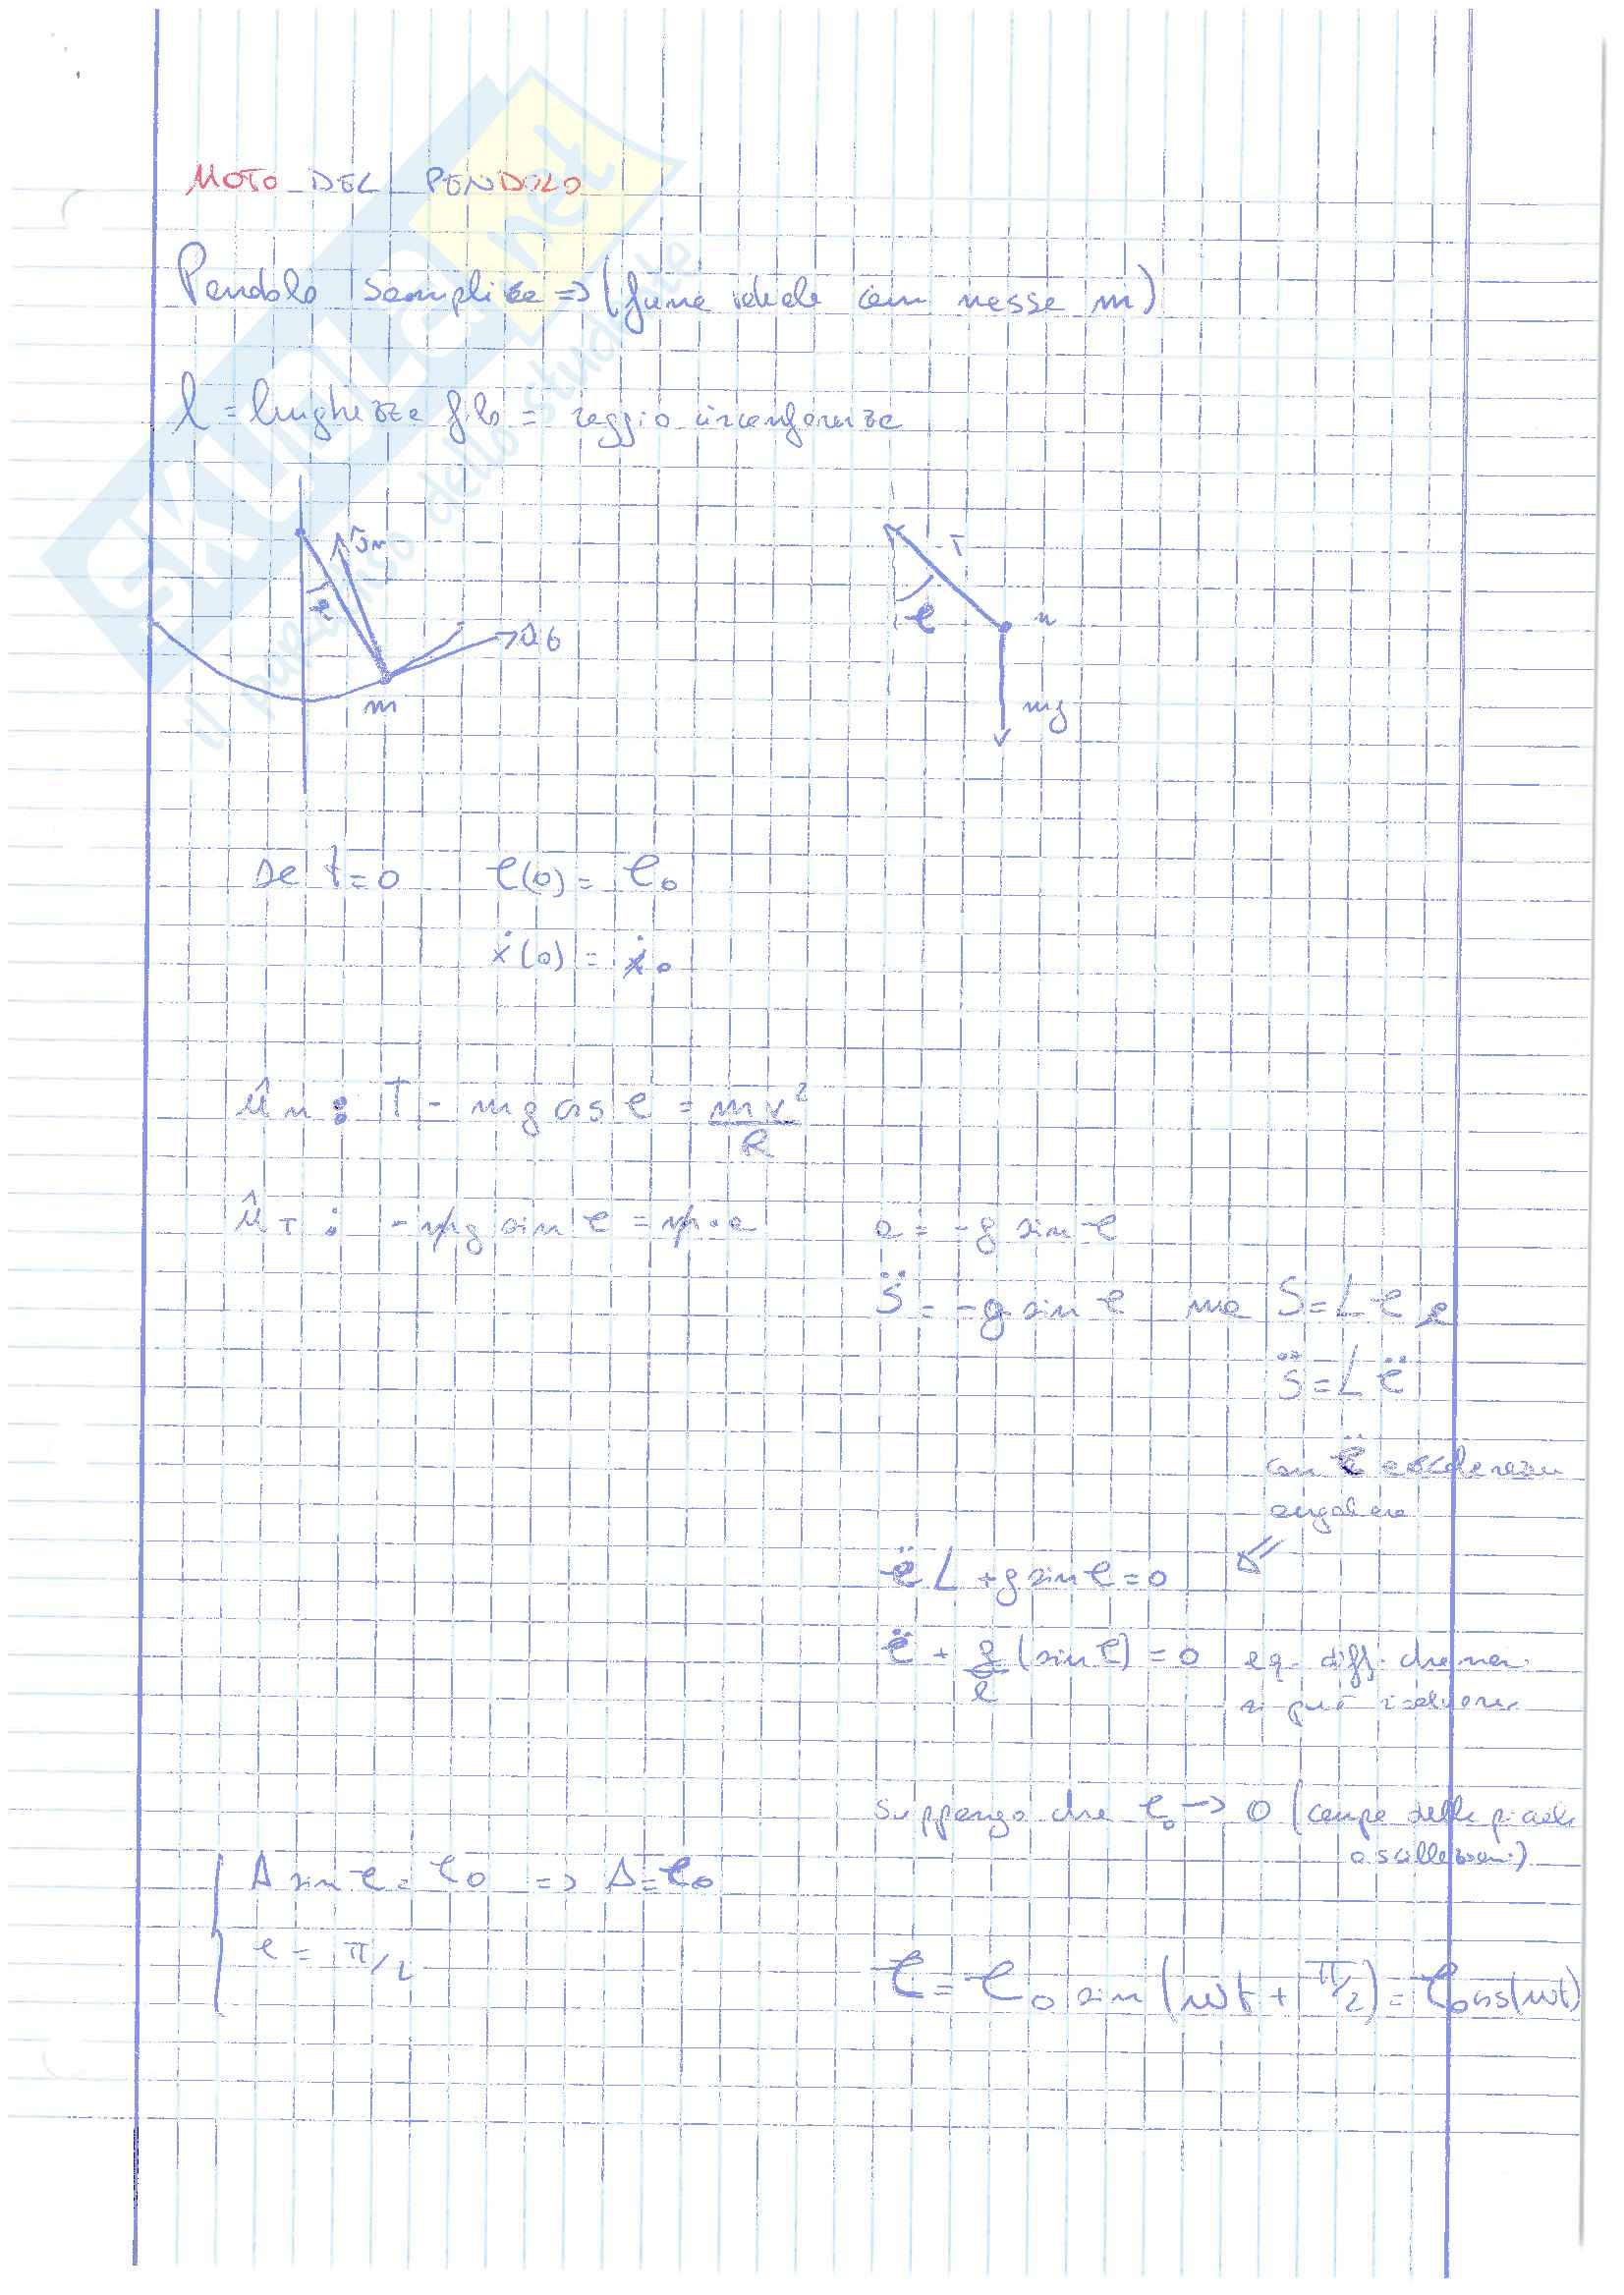 MOTO DEL PENDOLO
Pendolo semplice => (fune ideale con massa m)
l = lunghezza filo = raggio circonferenza
m
T
φ
φ
m
mg
Se t=0 φ(0) = φ₀
ẋ(0) = ẋ₀
û n : T - mg cos φ = mv²/R
û T : - mg sin φ = m·a a = -g sin φ
S̈ = -g sin φ ma S = Lφ e
S̈ = L φ̈
con φ̈ accelerazion
angolare
φ̈ L + g sin φ = 0
φ̈ + g/l (sin φ) = 0 eq. diff. che non
si può risolvere
Suppongo che φ₀ -> 0 (campo delle piccole
oscillazioni)
A sin φ = φ₀ => A = φ₀
φ = π/2
φ = φ₀ sin (ωt + π/2) = φ₀ cos(ωt)
SKUOLA.net
il paradiso dello studente